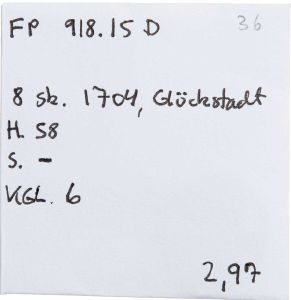 FP 918.15 D 36
8 sk. 1704, Glückstadt
H. 58
S. -
VGL. 6
2,97